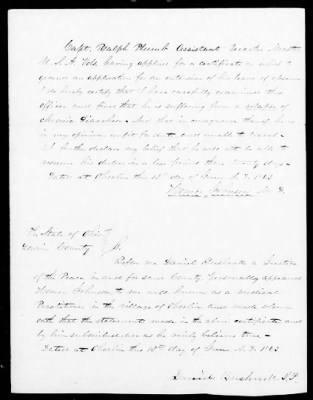 Capt. Ralph Plumb Assistant Quarter Master
U. S. A. Vols having applied for a certificate on which to
ground an application for an extension of his leave of absence
I do hereby certify that I have carefully examined this
officer and find that he is suffering from a relapse of
chronic Diarrhea - And that in consequence thereof he is
in my opinion unfit for duty and unable to travel -
I further declare my belief that he will not be able to
resume his duties in a less period than days -
Dated at Oberlin this 10th day of June A. D. 1863
Homer Johnson M. D.
The State of Ohio
Lorain County SS.
Before me Daniel Bushnell a Justice
of the Peace in and for said County Personally appeared
Homer Johnson to me well known as a medical
Practitioner in the village of Oberlin and made solemn
oath that the statement made in the above certificate and
by him subscribed are as he verily believes true -
Dated at Oberlin this 10th day of June A. D. 1863
Daniel Bushnell J.P.